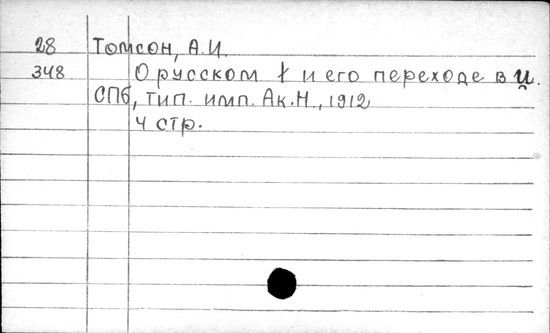 28 Томсон, А.И.
348 О русском ł и его переходе в u̯.
СПб, тип. имп. Ак.Н., 1912
4 стр.